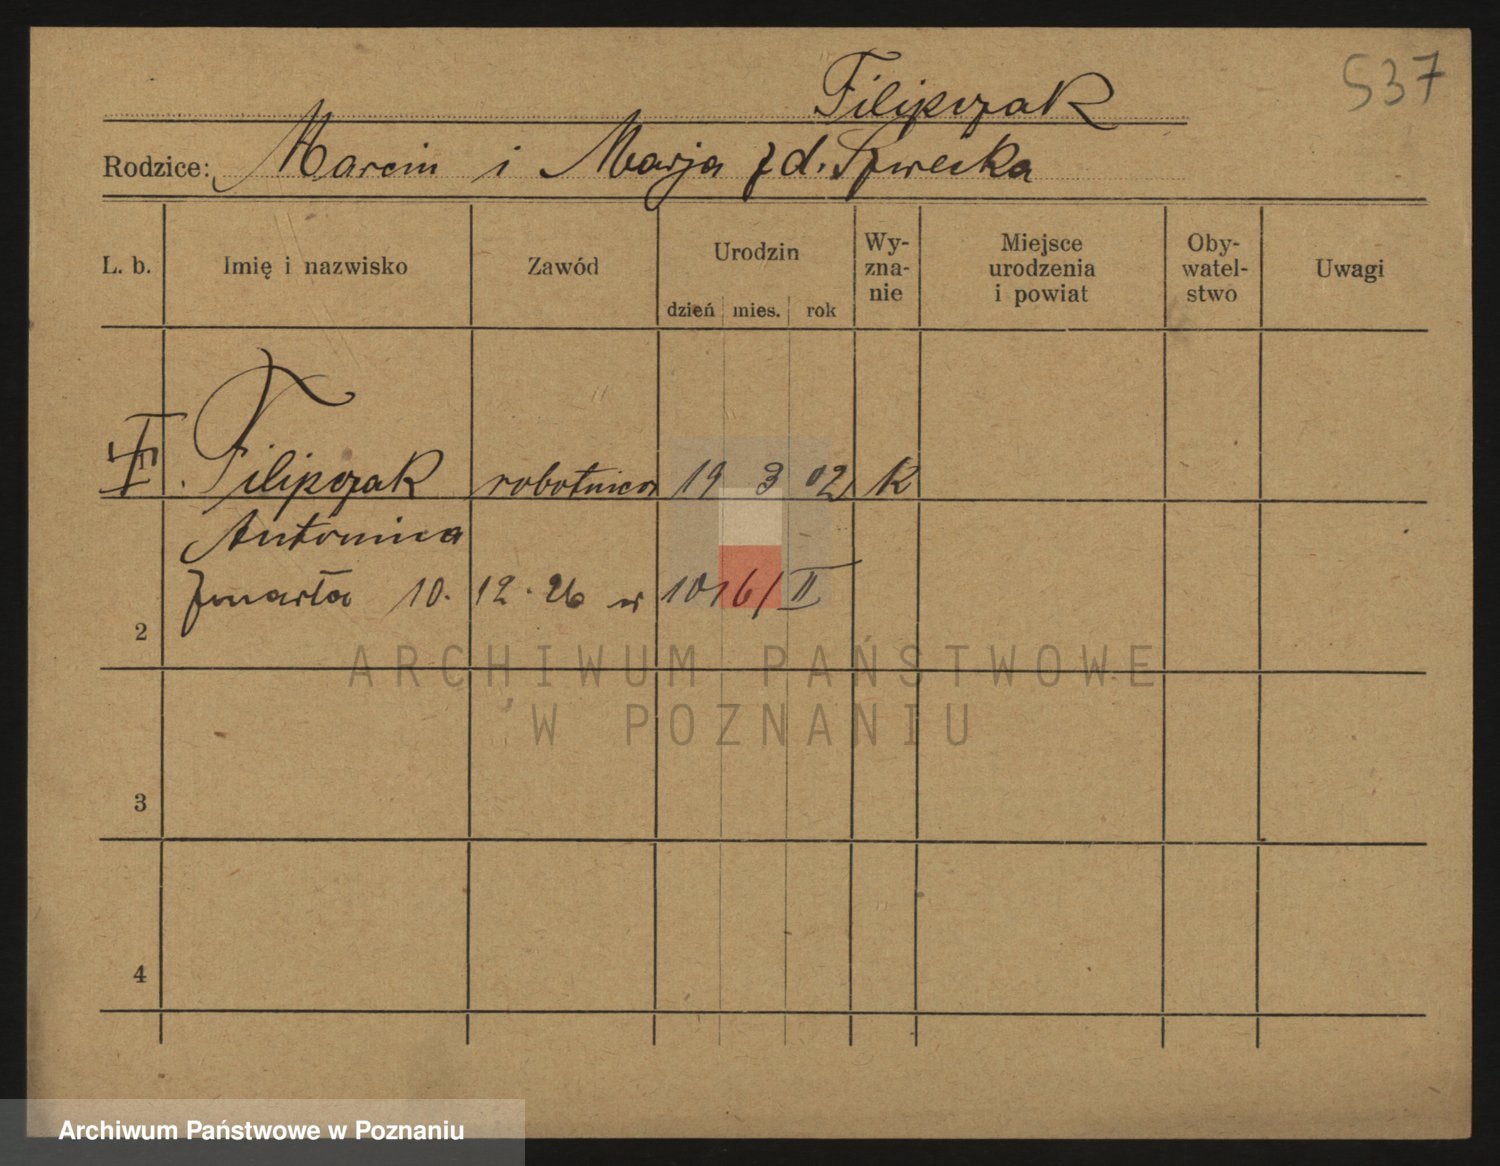 537
Filipczak
Rodzice: Marcin i Marja z d. Szwecka
L. b. Imię i nazwisko Zawód Urodzin dzień mies. rok Wy-zna-nie Miejsce urodzenia i powiat Oby-watel-stwo Uwagi
Filipczak robotnica 19 3 02 k
Antonina
zmarła 10. 12. 26 nr 1016/II
2
ARCHIWUM PAŃSTWOWE
W POZNANIU
3
4
Archiwum Państwowe w Poznaniu